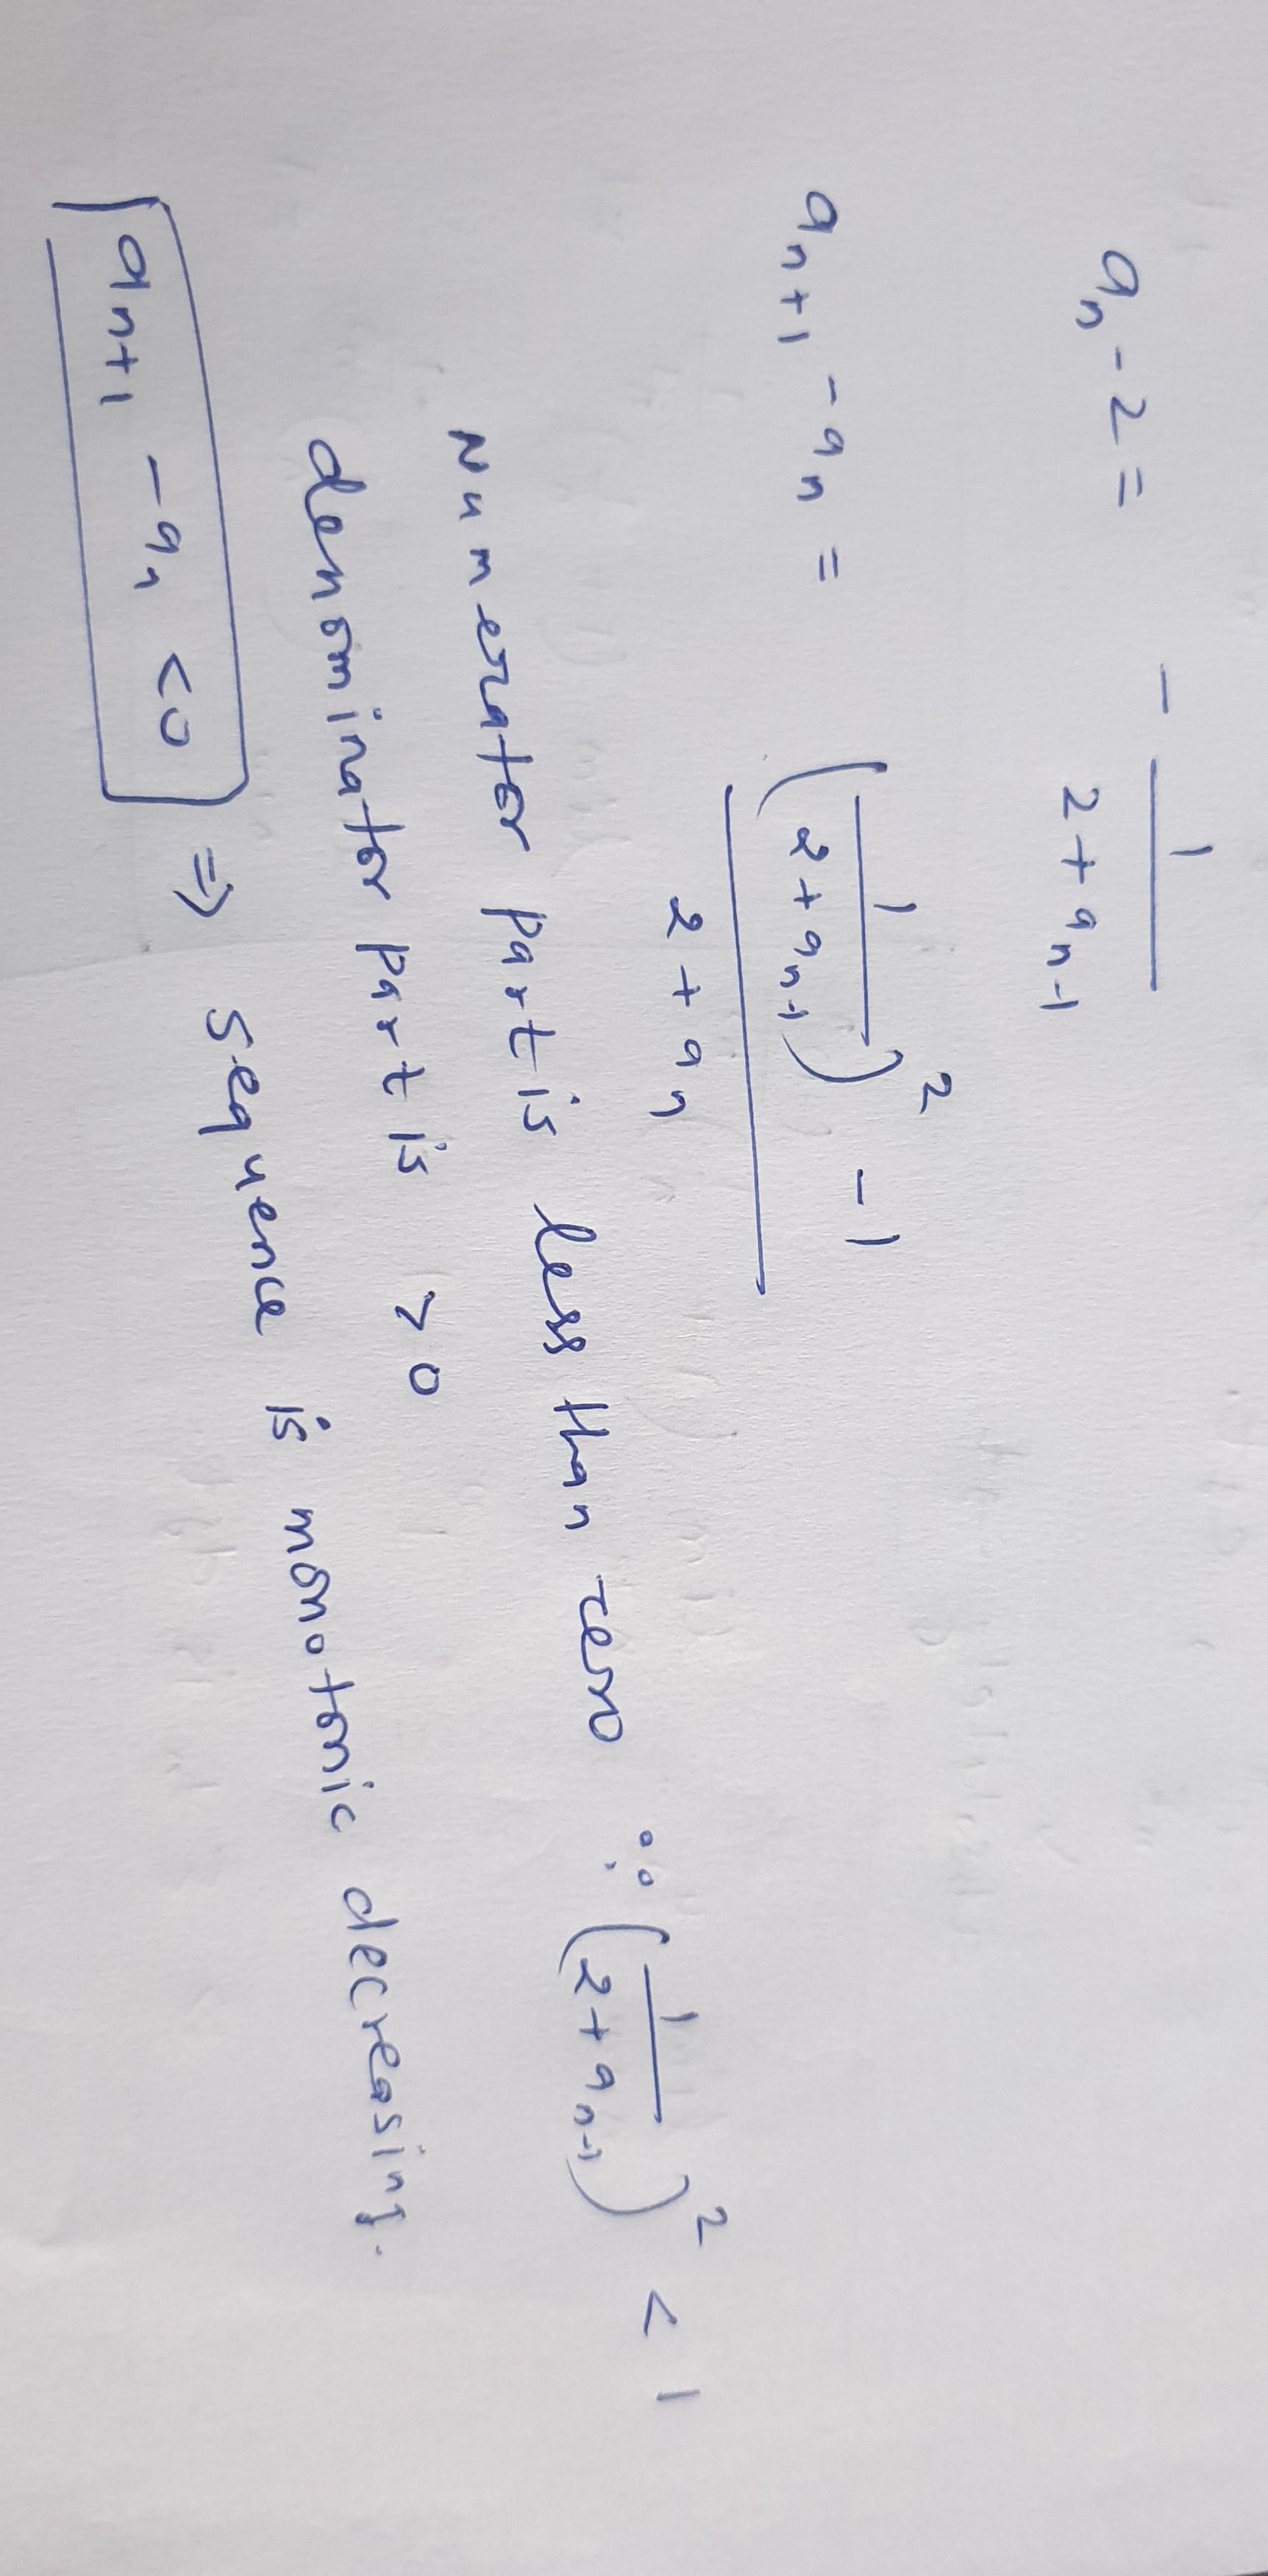 a_n - 2 = - 1/(2 + a_{n-1})
a_{n+1} - a_n = ((1/(2 + a_{n-1}))^2 - 1)/(2 + a_n)
Numerator part is less than zero ∵ (1/(2 + a_{n-1}))^2 < 1
denominator part is > 0
a_{n+1} - a_n < 0 ⇒ sequence is monotonic decreasing.